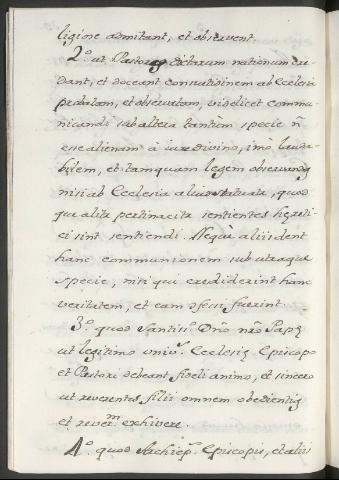 ligione admitant, et observent.
2.º ut Pastores dictarum nationum cre-
dant, et doceant consuetudinem ab Ecclesia
probatam, et observatam, videlicet commu-
nicandi sub altera tantùm specie ñ
esse alienam à iure divino, imò lauda-
bilem, et tamquam legem observandã
nisi ab Ecclesia aliud statuat, quod
qui aliter pertinaciter sentientes hereti-
ci sint sentiendi. Neque alii dent
hanc communionem sub utraque
specie, nisi qui crediderint hanc
veritatem, et eam fuerint.
3.º quod Santiss.º Dño ñro Papę
ut legitimo univ.ę Ecclesię Episcopo
et Pastori debeant fideli animo, et sincero
ut reverentes filii omnem obedientię
et reverẽ exhivere.
4.º quod Archiep.º Episcopis, et alii